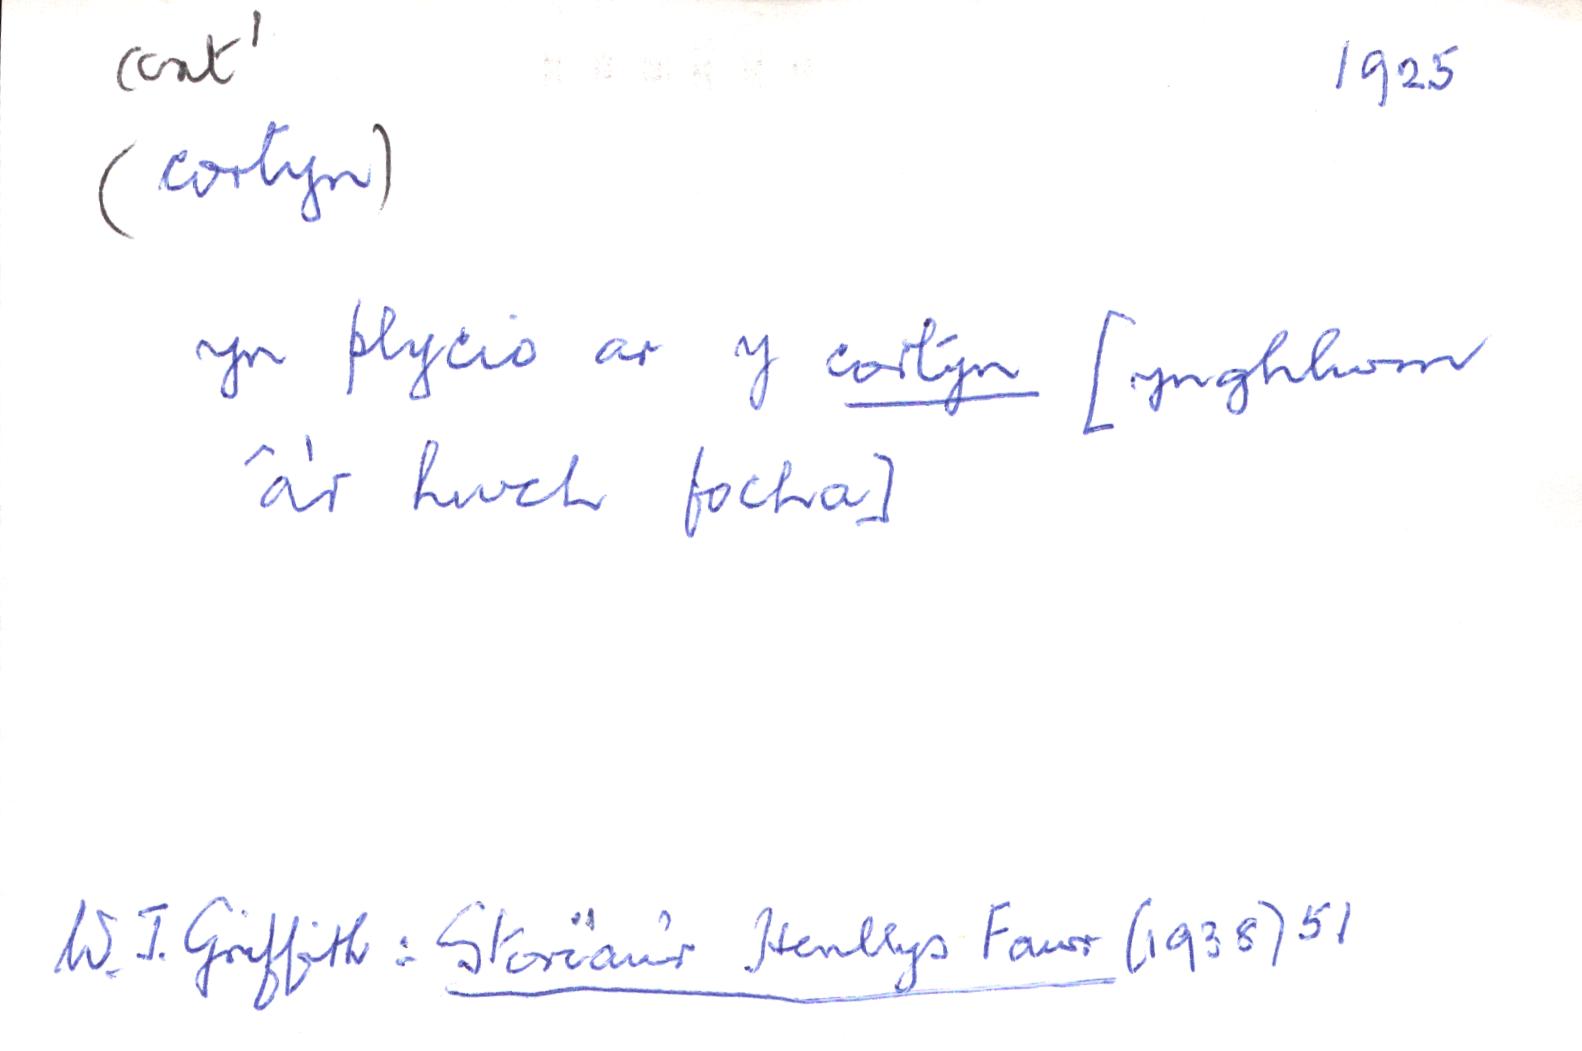 cort¹
1925
(cortyn)
yn plycio ar y cortyn [ynghlwm
â'r hwch focha]
W. J. Griffith: Storïau'r Henllys Fawr (1938) 51